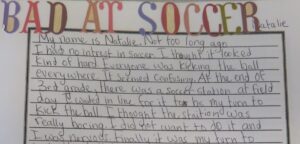 BAD AT SOCCER
Natalie
My name is Natalie. Not too long ago
I had no intrest in soccer. I thought it looked
kind of hard. Everyone was kicking the ball
everywhere. It seemed confusing. At the end of
3rd grade, there was a soccer station at field
day. I waited in line for it to be my turn to
kick the ball. I thought the station was
really boring. I did not want to do it and
I was nervous. Finally it was my turn to